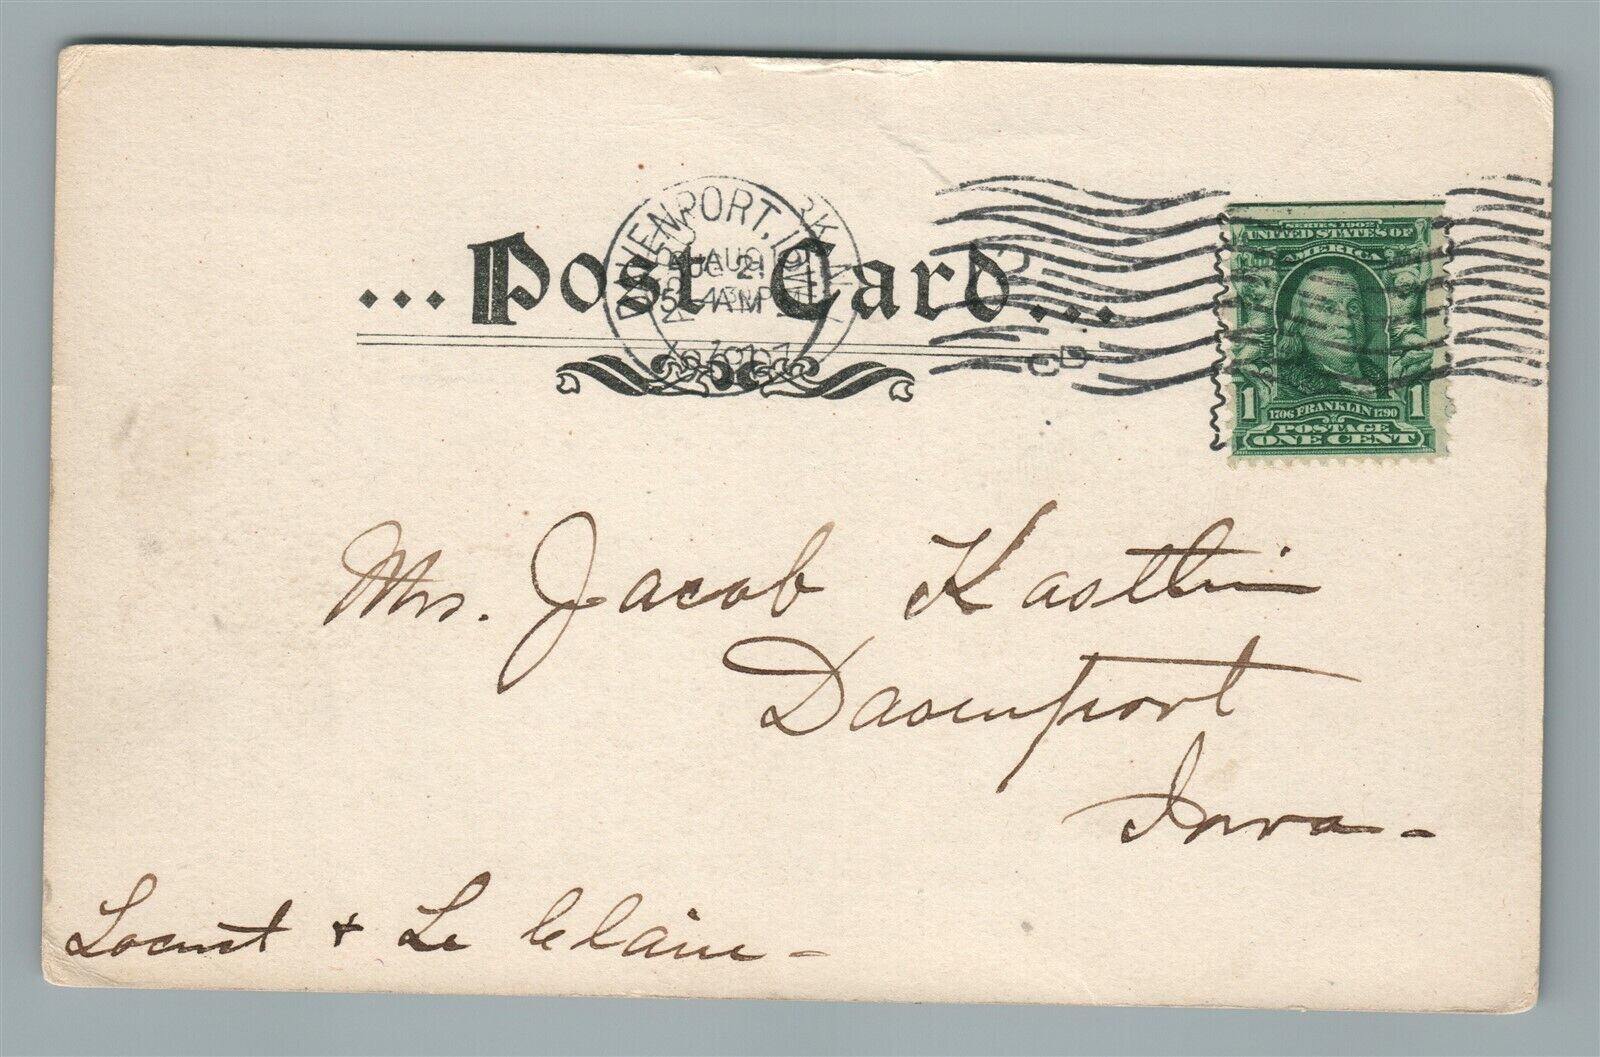 ...Post Card...
DAVENPORT, I
SERIES 1902
UNITED STATES OF
AMERICA
1706 FRANKLIN 1790
1 POSTAGE 1
ONE CENT
Mrs. Jacob Kastlin
Davenport
Iowa -
Locust + Le Claire -